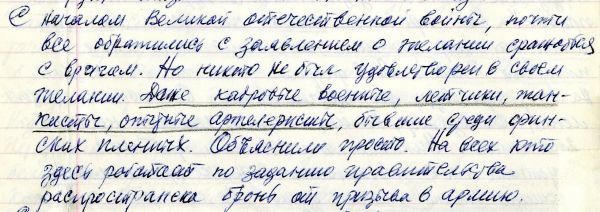 С началом Великой отечественной войны, почти
все обратились с заявлением о желании сражаться
с врагом. Но никто не был удовлетворен в своем
желании. Даже кадровые военные, летчики, тан-
кисты, опытные артелеристы, бывшие среди фин-
ских пленных. Объяснили просто. На всех кто
здесь работает по заданию правительства
распространена бронь от призыва в армию.